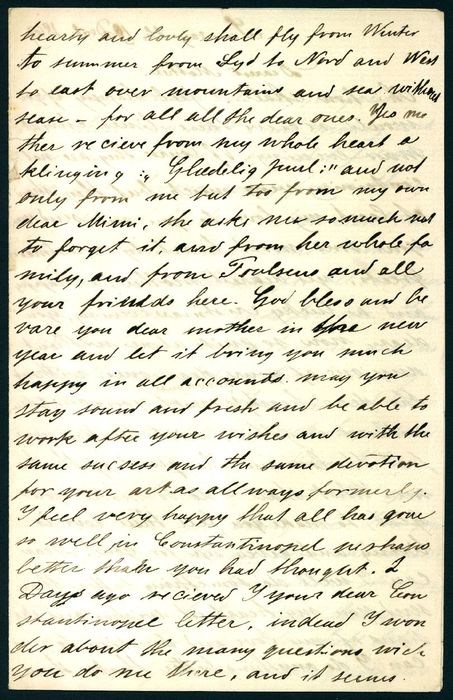 hearty and lovly shall fly from Winter
to summer from Syd to Nord and West
to east over mountains and sea without
sease – for all all the dear ones. Yes mo
ther recieve from my whole heart a
klinging :„ Glædelig Juul:" and not
only from me but too from my own
dear Mimi, she asks me so much not
to forget it, and from her whole fa
mily, and from Poulsens and all
your friends here. God bless and be
vare you dear mother in the new
year and let it bring you much
happy in all accounts. may you
stay sound and fresh and be able to
work after your wishes and with the
same sucsess and the same devotion
for your art as allways formerly.
I feel very happy that all has gone
so well in Constantinopel perhaps
better than you had thought. 2
Days ago recieved I your dear Con
stantinopel letter, indead I won
der about the many questions wich
you do me there, and it seems